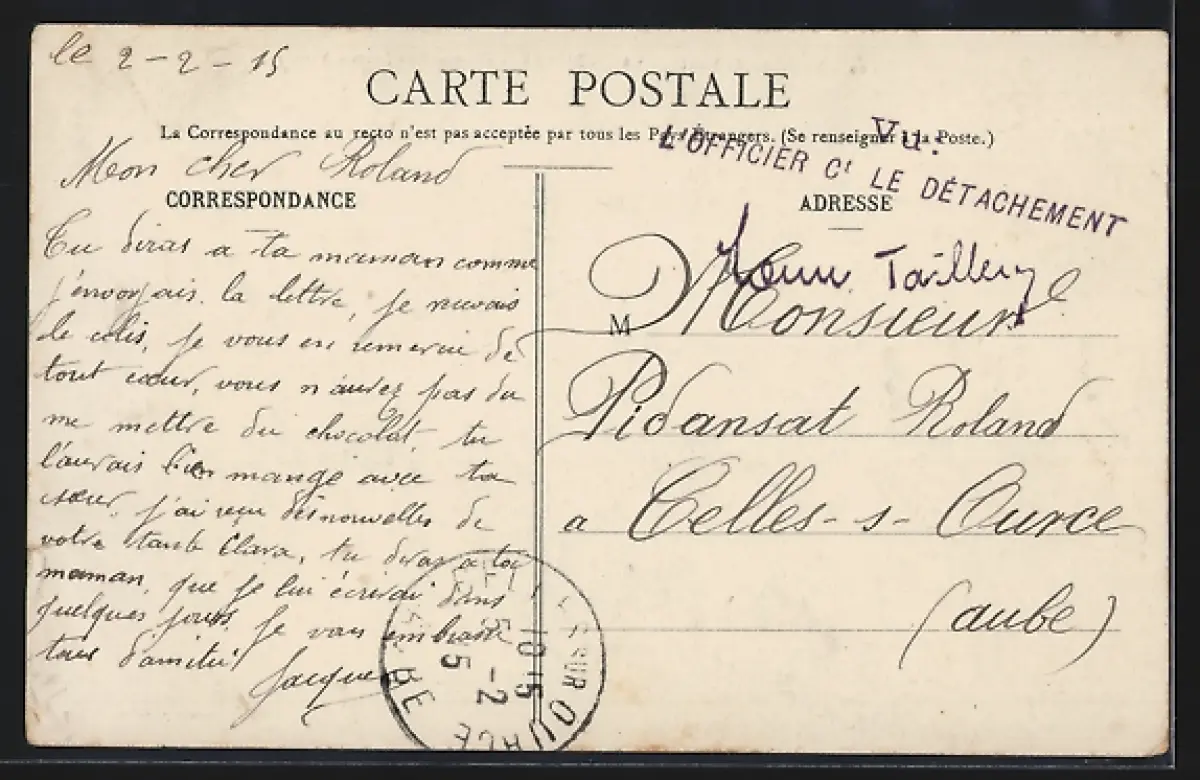 le 2-2-15
CARTE POSTALE
La Correspondance au recto n'est pas acceptée par tous les Pays Étrangers. (Se renseigner à la Poste.)
Mon cher Roland
CORRESPONDANCE
Tu diras a ta maman comme
j'envoyais la lettre, je recevais
le colis, je vous en remercie de
tout cœur, vous n'auriez pas du
me mettre du chocolat, tu
l'aurais bien mangé avec ta
sœur, j'ai reçu des nouvelles de
votre tante Clara, tu diras a ta
maman, que je lui écrirai dans
quelques jours, je vous embrasse
tous d'amitié
Jacques
Vu.
L'OFFICIER Ct LE DÉTACHEMENT
ADRESSE
M Monsieur
Pidansat Roland
a Celles-s-Ource
(aube)
SUR OURCE
10 15
5 -2
BE